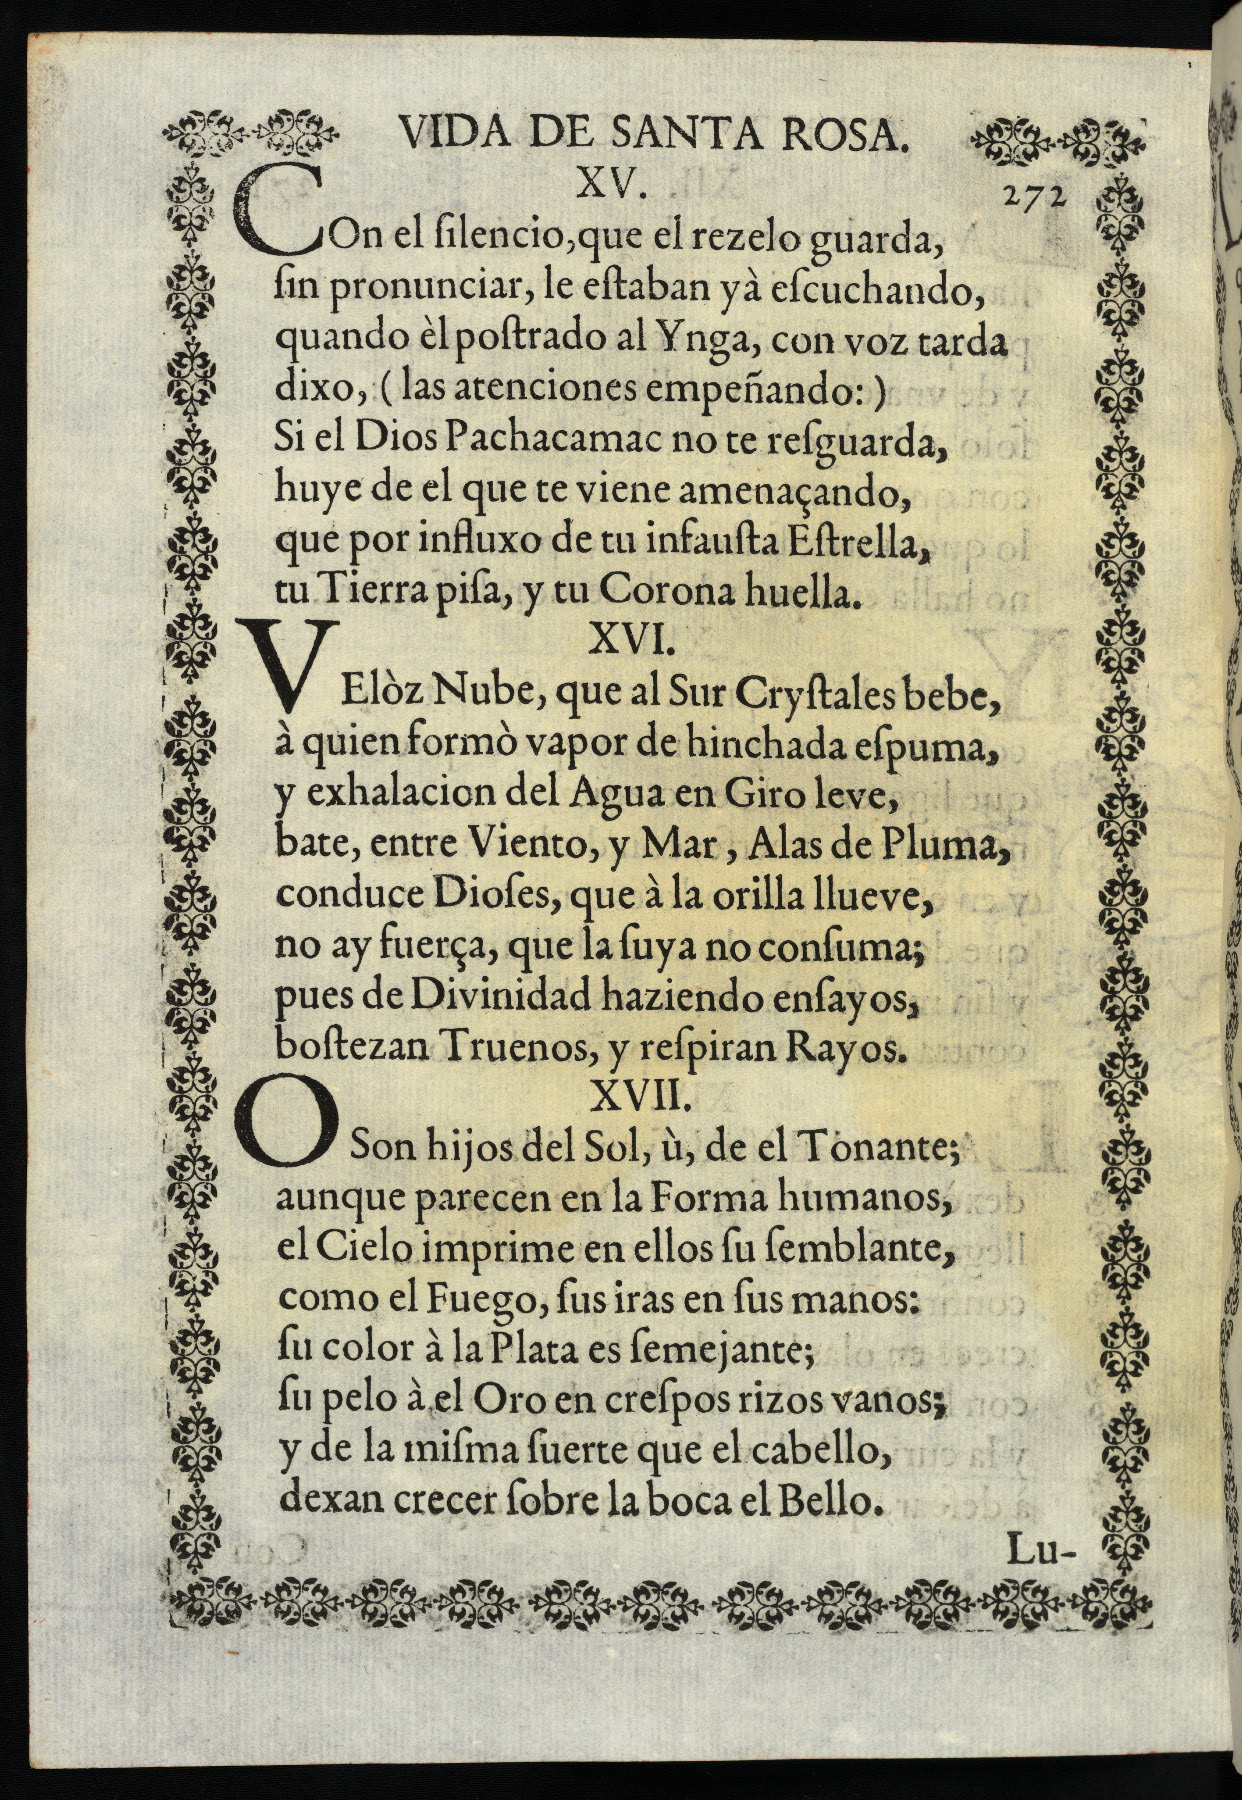 VIDA DE SANTA ROSA.
XV.
272
COn el ſilencio, que el rezelo guarda,
ſin pronunciar, le eſtaban yà eſcuchando,
quando èl poſtrado al Ynga, con voz tarda
dixo, ( las atenciones empeñando: )
Si el Dios Pachacamac no te reſguarda,
huye de el que te viene amenaçando,
que por influxo de tu infauſta Eſtrella,
tu Tierra piſa, y tu Corona huella.
XVI.
VElòz Nube, que al Sur Cryſtales bebe,
à quien formò vapor de hinchada eſpuma,
y exhalacion del Agua en Giro leve,
bate, entre Viento, y Mar, Alas de Pluma,
conduce Dioſes, que à la orilla llueve,
no ay fuerça, que la ſuya no conſuma;
pues de Divinidad haziendo enſayos,
boſtezan Truenos, y reſpiran Rayos.
XVII.
O Son hijos del Sol, ù, de el Tonante;
aunque parecen en la Forma humanos,
el Cielo imprime en ellos ſu ſemblante,
como el Fuego, ſus iras en ſus manos:
ſu color à la Plata es ſemejante;
ſu pelo à el Oro en creſpos rizos vanos;
y de la miſma ſuerte que el cabello,
dexan crecer ſobre la boca el Bello.
Lu-